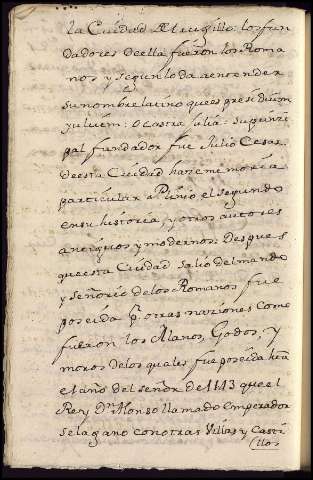 la Ciudad de trugillo: los fun
dadores de ella fueron los Roma
nos y segun lo da a entender
su nombre latino que es presidium
yulium: o Castra Julia: su prinzi
pal fundador fue Julio Cesar.
de esta Ciudad hace memoria
particular a Plinio el segundo
en su historia, y otros autores
antiguos y modernos. Despues
que esta Ciudad salio del mando
y señorio de los Romanos fue
poseida por otras naziones como
fueron los Alanos, Godos, y
moros de los quales fue poseida
el año del señor de 1143 que el
Rey Dn Alonso llamado emperador
se la gano con otras Villas y Casti
llos